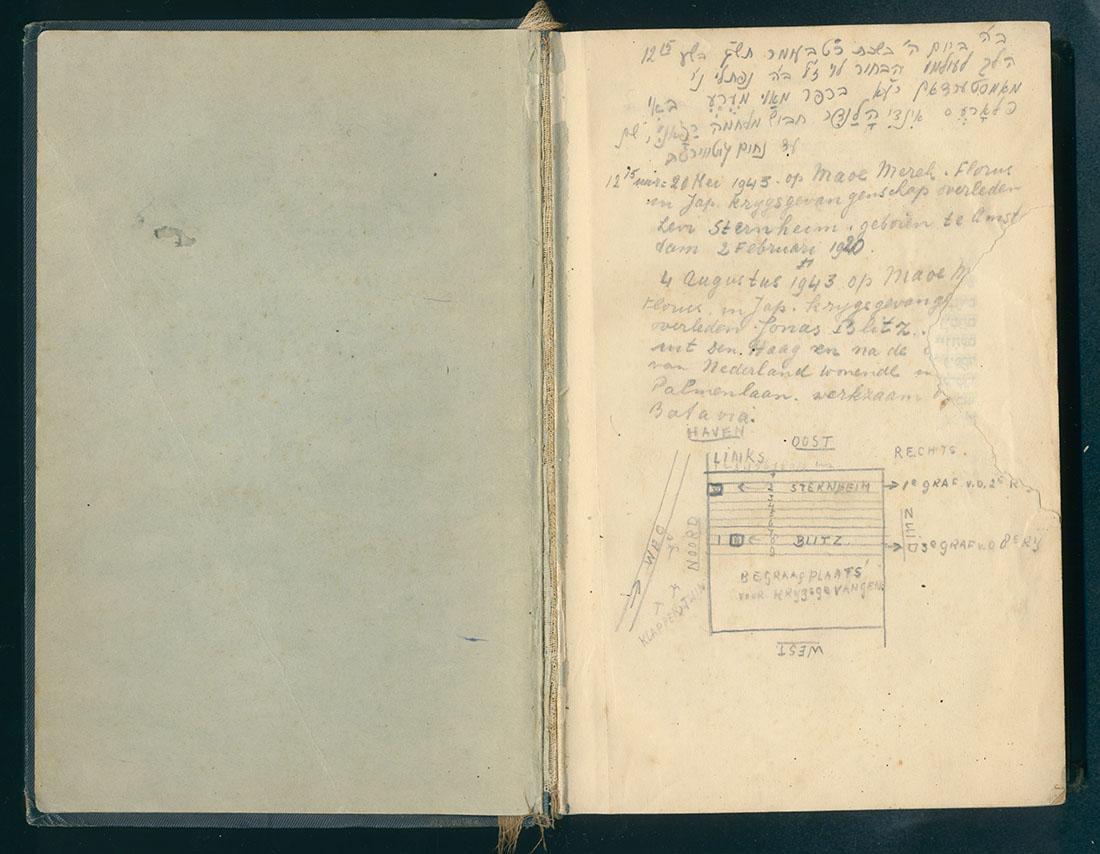 ב״ה ביום ה׳ בשבת ט״ו תש״ג בשעה 12 15
הלך לעולמו הבחור לוי ז״ל ב״ה נפתלי נ״י
מאמסטערדאם בכפר מאַוי מערע באי
פלאָרעס אינדי האָלאנד חבוש מלחמה
עד נחום
12 15 uur = 20 Mei 1943. op Maoe Merel. Florus
en Jap. krygsgevangenschap overleden
Levi Sternheim. geboren te Amst
dam 2 Februari 1920.
4 Augustus 1943 op Maoe M
Florus. in Jap. krygsgevang
overleden Jonas Blitz.
uit Den. Haag en na de
van Nederland wonende
Palmenlaan. werkzaam
Batavia.
HAVEN
OOST
LINKS
RECHTS.
1
2 STERNHEIM → 1e GRAF V.D. 2e R
3
4
5
6
7
1 8 BLITZ. → 3e GRAF V.D 8e RY
9
WEG
NOORD
KLAPPERTUIN
BEGRAAGPLAATS
VOOR KRYGSGEVANGEN
WEST